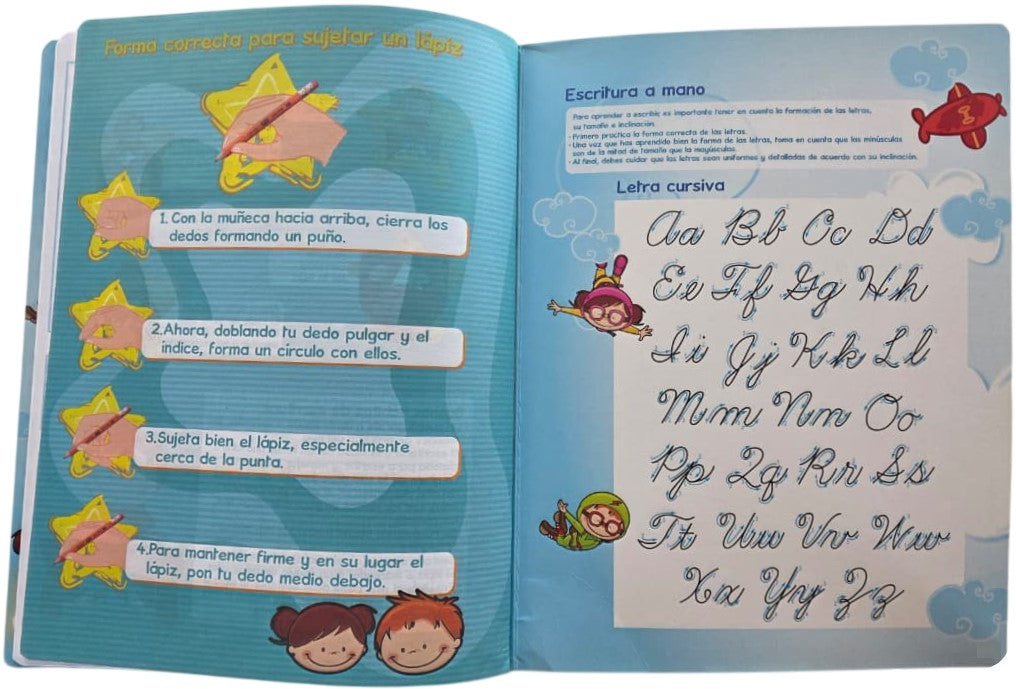 Forma correcta para sujetar un lápiz
1. Con la muñeca hacia arriba, cierra los
dedos formando un puño.
2.Ahora, doblando tu dedo pulgar y el
índice, forma un circulo con ellos.
3.Sujeta bien el lápiz, especialmente
cerca de la punta.
4.Para mantener firme y en su lugar el
lápiz, pon tu dedo medio debajo.
Escritura a mano
Para aprender a escribir, es importante tener en cuenta la formación de las letras,
su tamaño e inclinación.
- Primero practica la forma correcta de las letras.
- Una vez que has aprendido bien la forma de las letras, toma en cuenta que las minúsculas
son de la mitad de tamaño que la mayúsculas.
- Al final, debes cuidar que las letras sean uniformes y detalladas de acuerdo con su inclinación.
Letra cursiva
Aa Bb Cc Dd
Ee Ff Gg Hh
Ii Jj Kk Ll
Mm Nn Oo
Pp Qq Rr Ss
Tt Uu Vv Ww
Xx Yy Zz